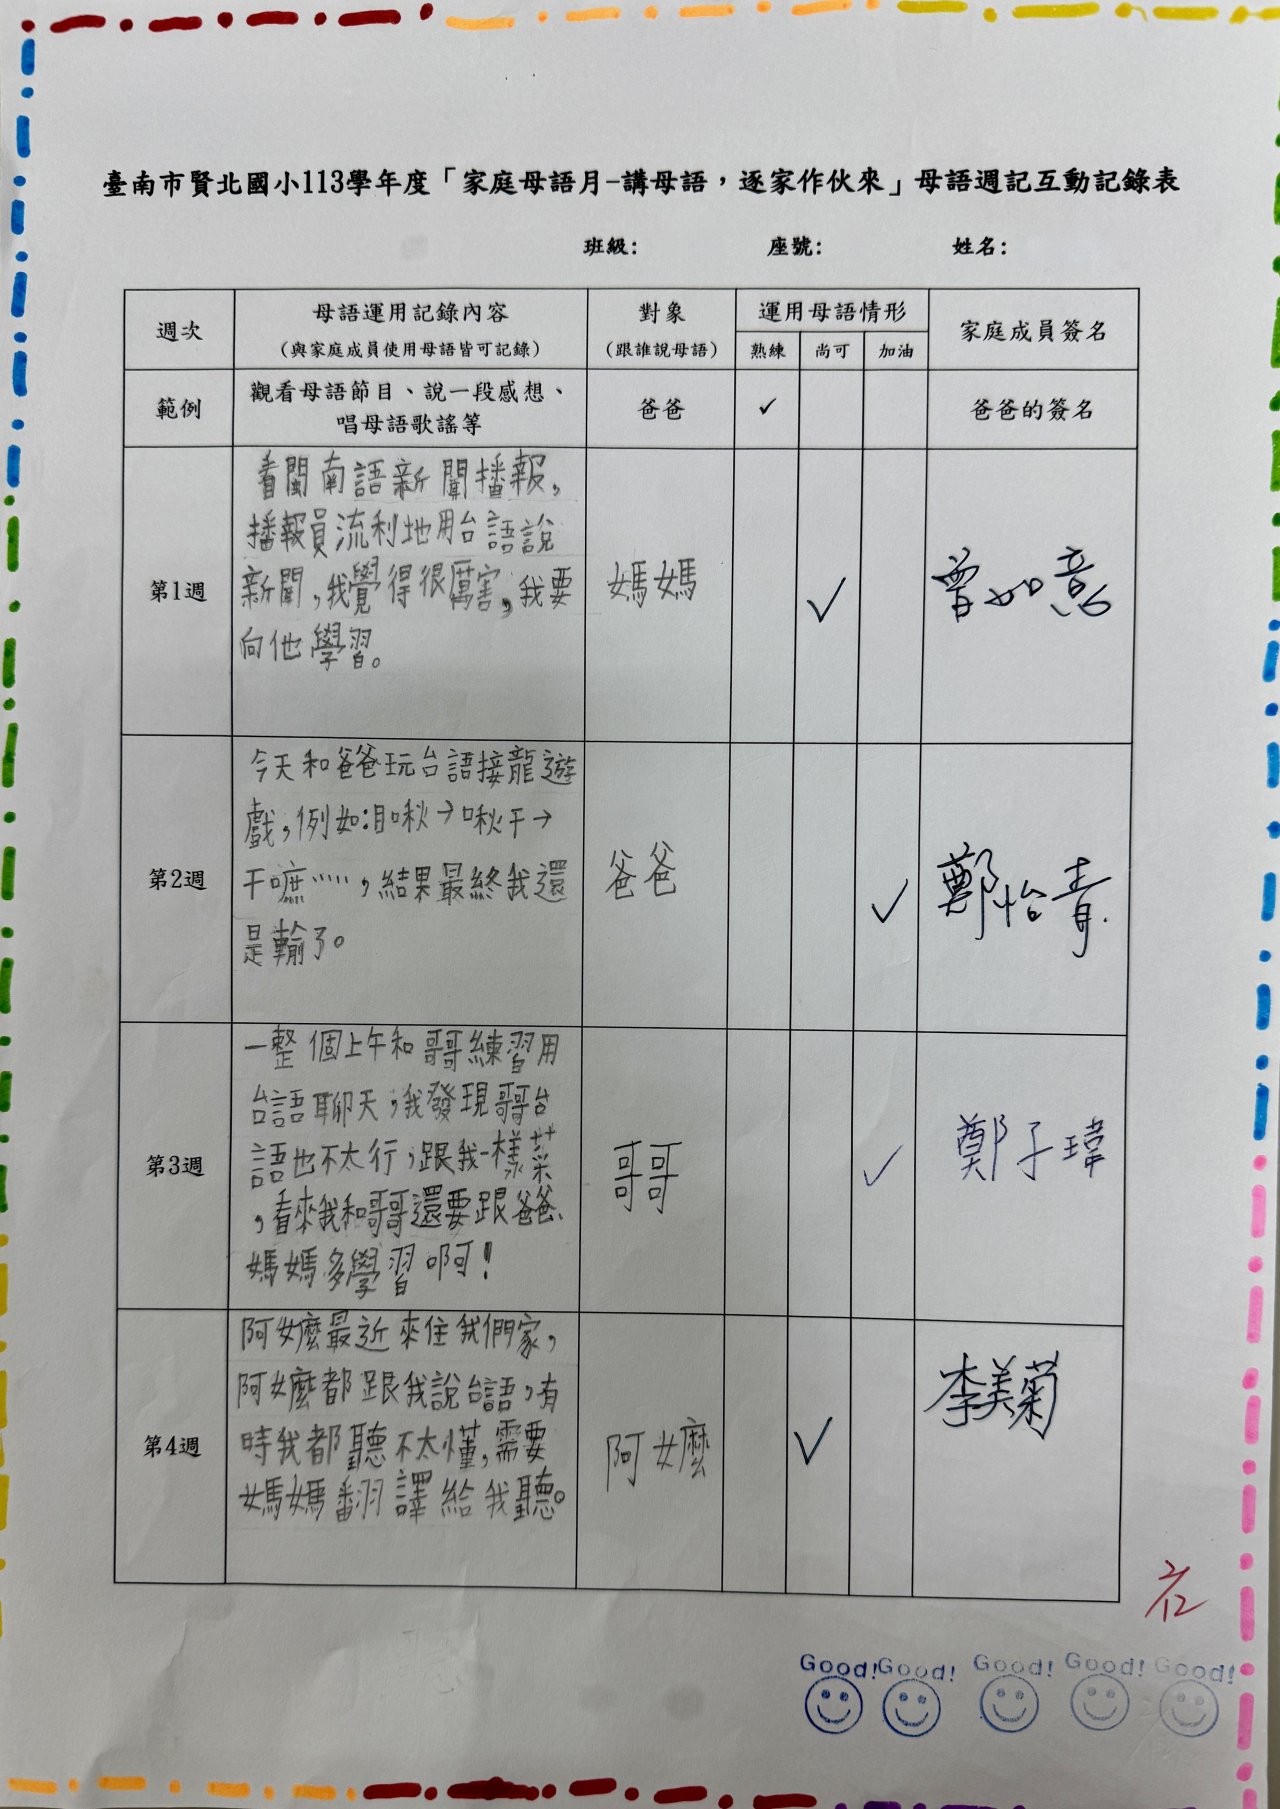 臺南市賢北國小113學年度「家庭母語月-講母語,逐家作伙來」母語週記互動記錄表
班級: 座號: 姓名:
週次 母語運用記錄內容 (與家庭成員使用母語皆可記錄) 對象 (跟誰說母語) 運用母語情形 熟練 尚可 加油 家庭成員簽名
範例 觀看母語節目、說一段感想、 爸爸 ✓ 爸爸的簽名
唱母語歌謠等
看閩南語新聞播報,
播報員流利地用台語說
新聞,我覺得很厲害,我要
向他學習。
第1週 媽媽 ✓ 曾如意
今天和爸爸玩台語接龍遊
戲,例如:目啾→啾干→
干嘛……,結果最終我還
是輸了。
第2週 爸爸 ✓ 鄭怡青
一整個上午和哥哥練習用
台語聊天,我發現哥哥台
語也不太行,跟我一樣菜
,看來我和哥哥還要跟爸爸、
媽媽多學習啊!
第3週 哥哥 ✓ 鄭子瑋
阿嬤最近來住我們家,
阿嬤都跟我說台語,有
時我都聽不太懂,需要
媽媽翻譯給我聽。
第4週 阿嬤 ✓ 李美菊
Good! Good! Good! Good! Good!